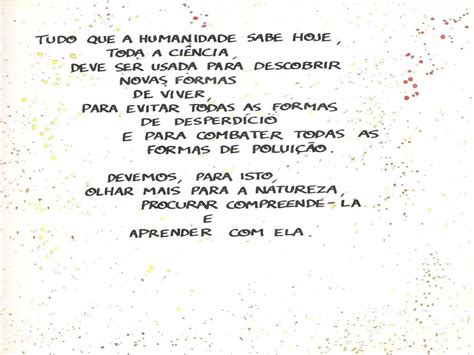 TUDO QUE A HUMANIDADE SABE HOJE,
TODA A CIÊNCIA,
DEVE SER USADA PARA DESCOBRIR
NOVAS FORMAS
DE VIVER,
PARA EVITAR TODAS AS FORMAS
DE DESPERDÍCIO
E PARA COMBATER TODAS AS
FORMAS DE POLUIÇÃO.
DEVEMOS, PARA ISTO,
OLHAR MAIS PARA A NATUREZA,
PROCURAR COMPREENDE-LA
E
APRENDER COM ELA.